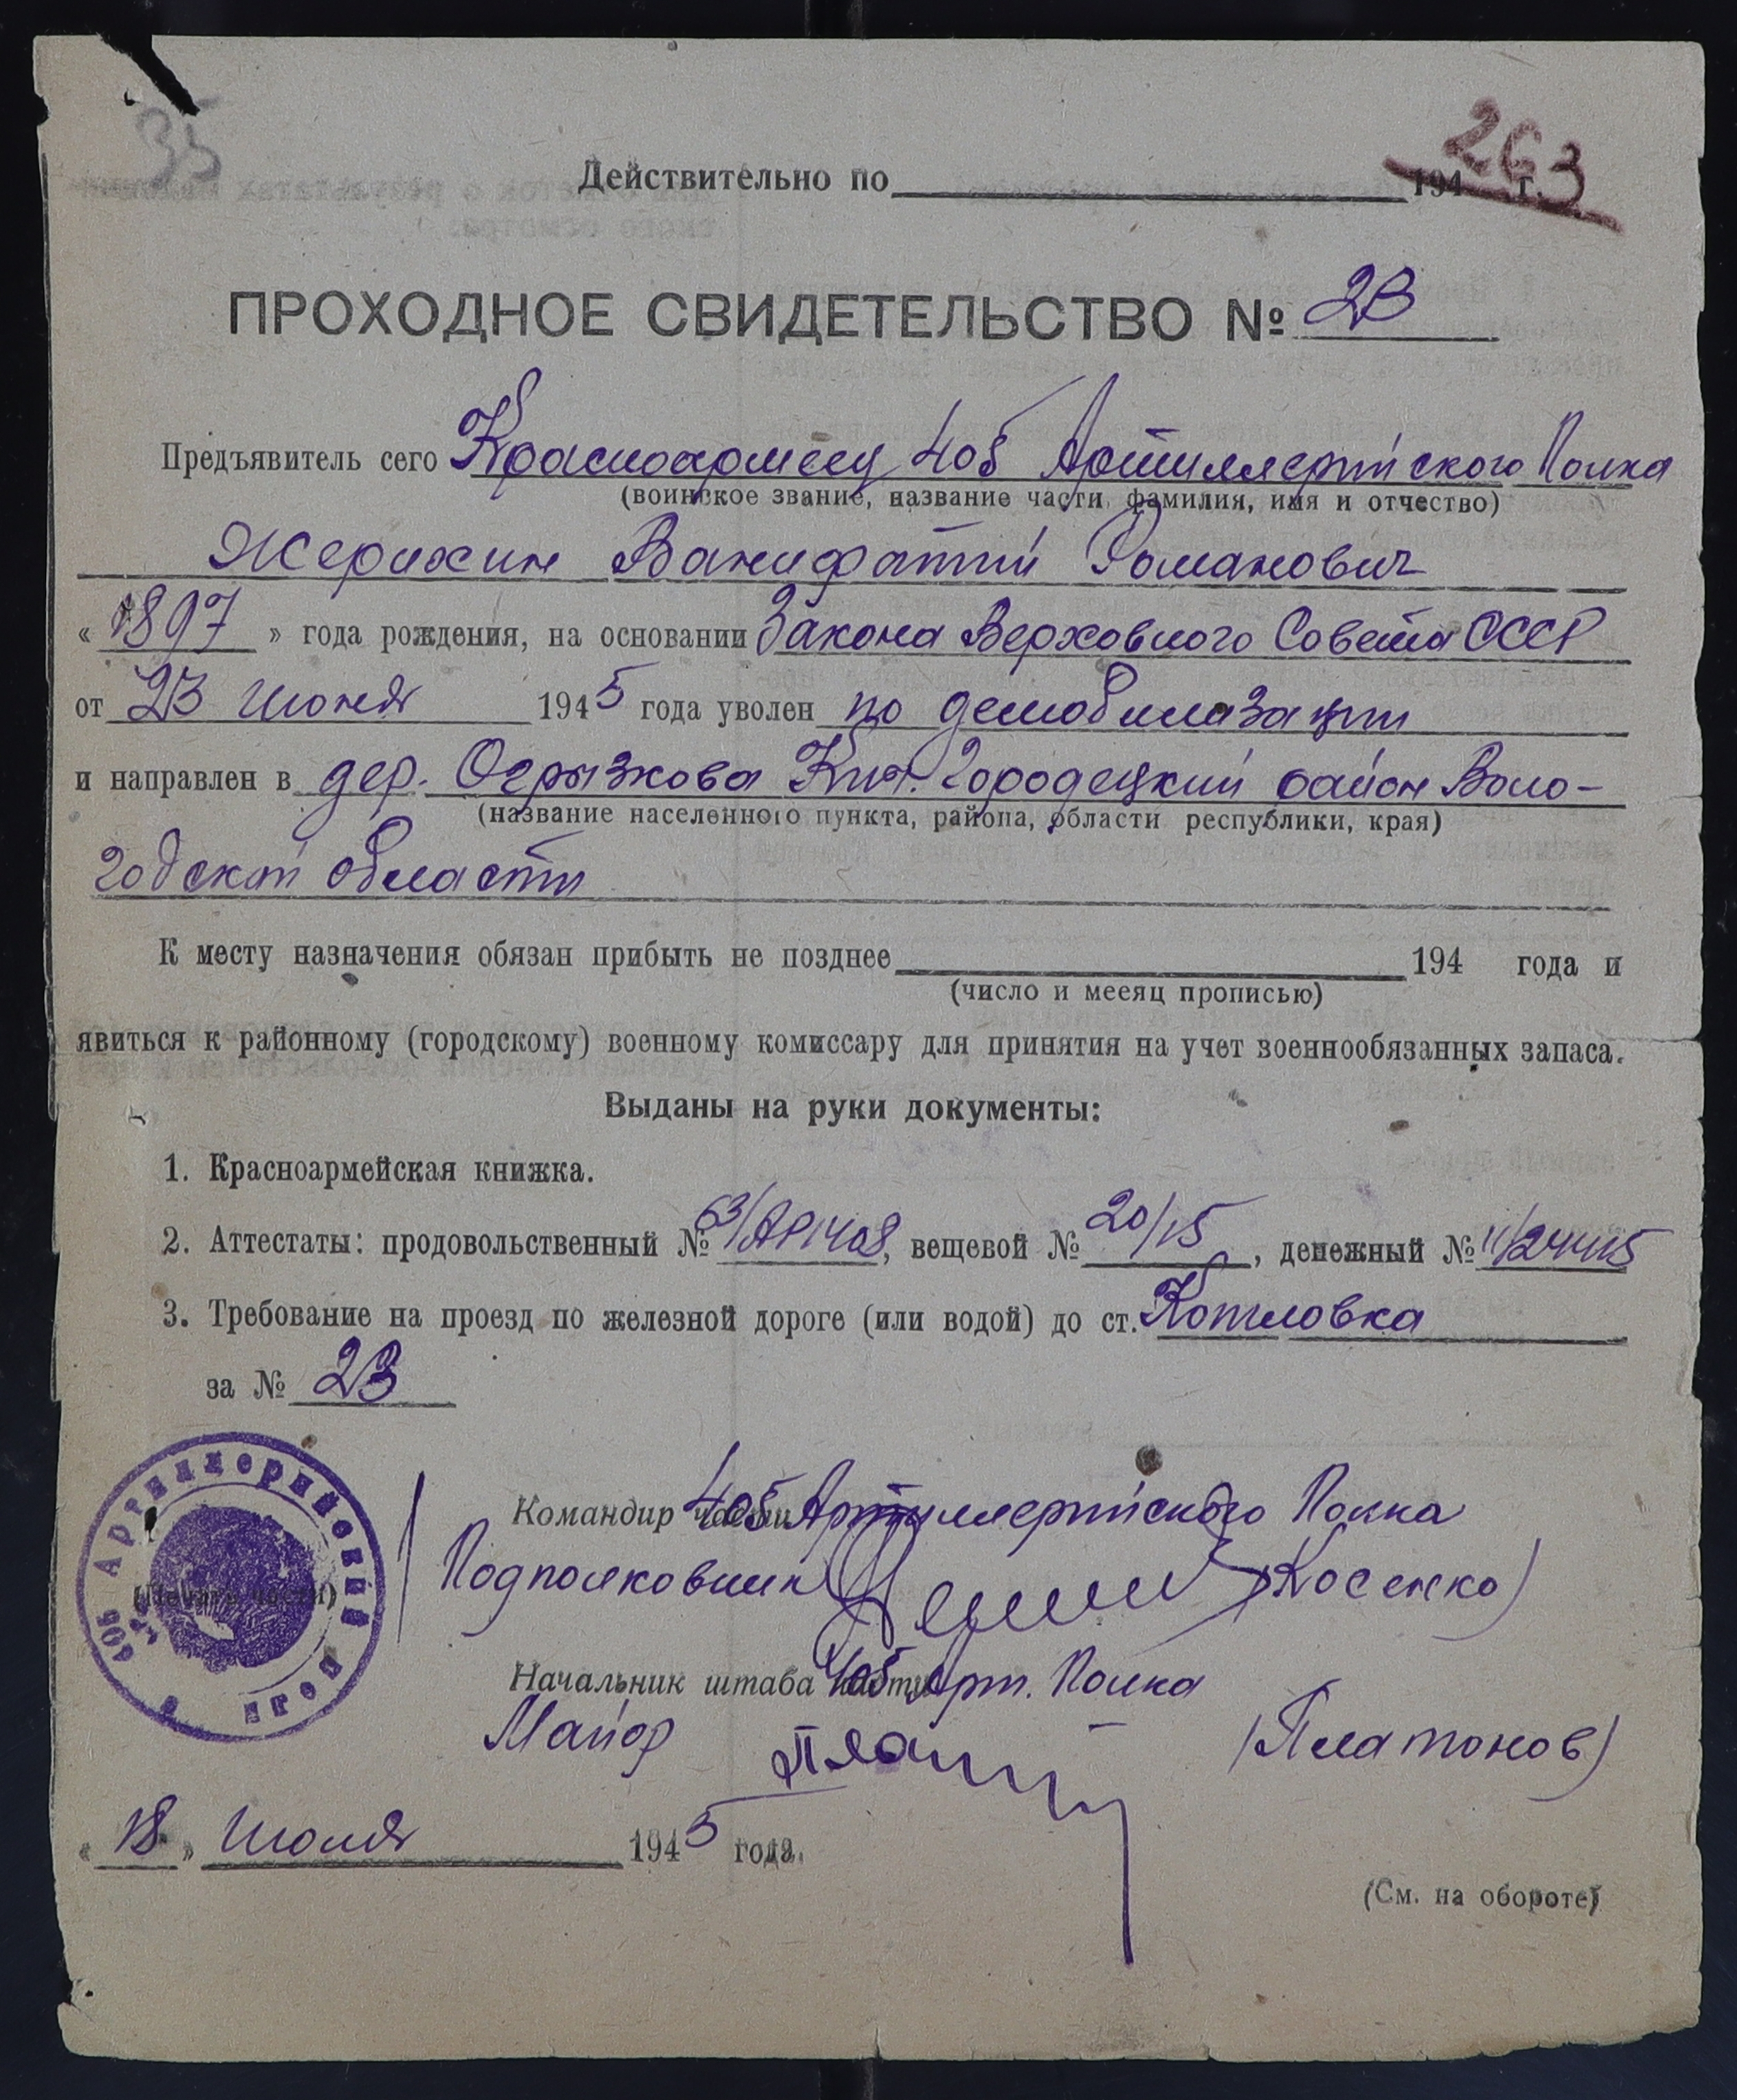 35
263
Действительно по 194 г.
ПРОХОДНОЕ СВИДЕТЕЛЬСТВО № 23
Предъявитель сего Красноармеец 405 Артиллерийского Полка
(воинское звание, название части, фамилия, имя и отчество)
Жерихин Ванифатий Романович
« 1897 » года рождения, на основании Закона Верховного Совета СССР
от 23 июня 1945 года уволен по демобилизации
и направлен в дер. Огрызкова Кич. Городецкий район Воло-
(название населенного пункта, района, области республики, края)
годской области
К месту назначения обязан прибыть не позднее 194 года и
(число и месяц прописью)
явиться к районному (городскому) военному комиссару для принятия на учет военнообязанных запаса.
Выданы на руки документы:
1. Красноармейская книжка.
2. Аттестаты: продовольственный № 63/АР1408, вещевой № 20/15, денежный № 11/24415
3. Требование на проезд по железной дороге (или водой) до ст. Котловка
за № 23
405 Артиллерийский полк
(Печать части)
Командир части 405 Артиллерийского Полка
Подполковник (Косенко)
Начальник штаба части 405 Арт. Полка
Майор (Платонов)
« 18 » Июля 1945 года.
(См. на обороте)